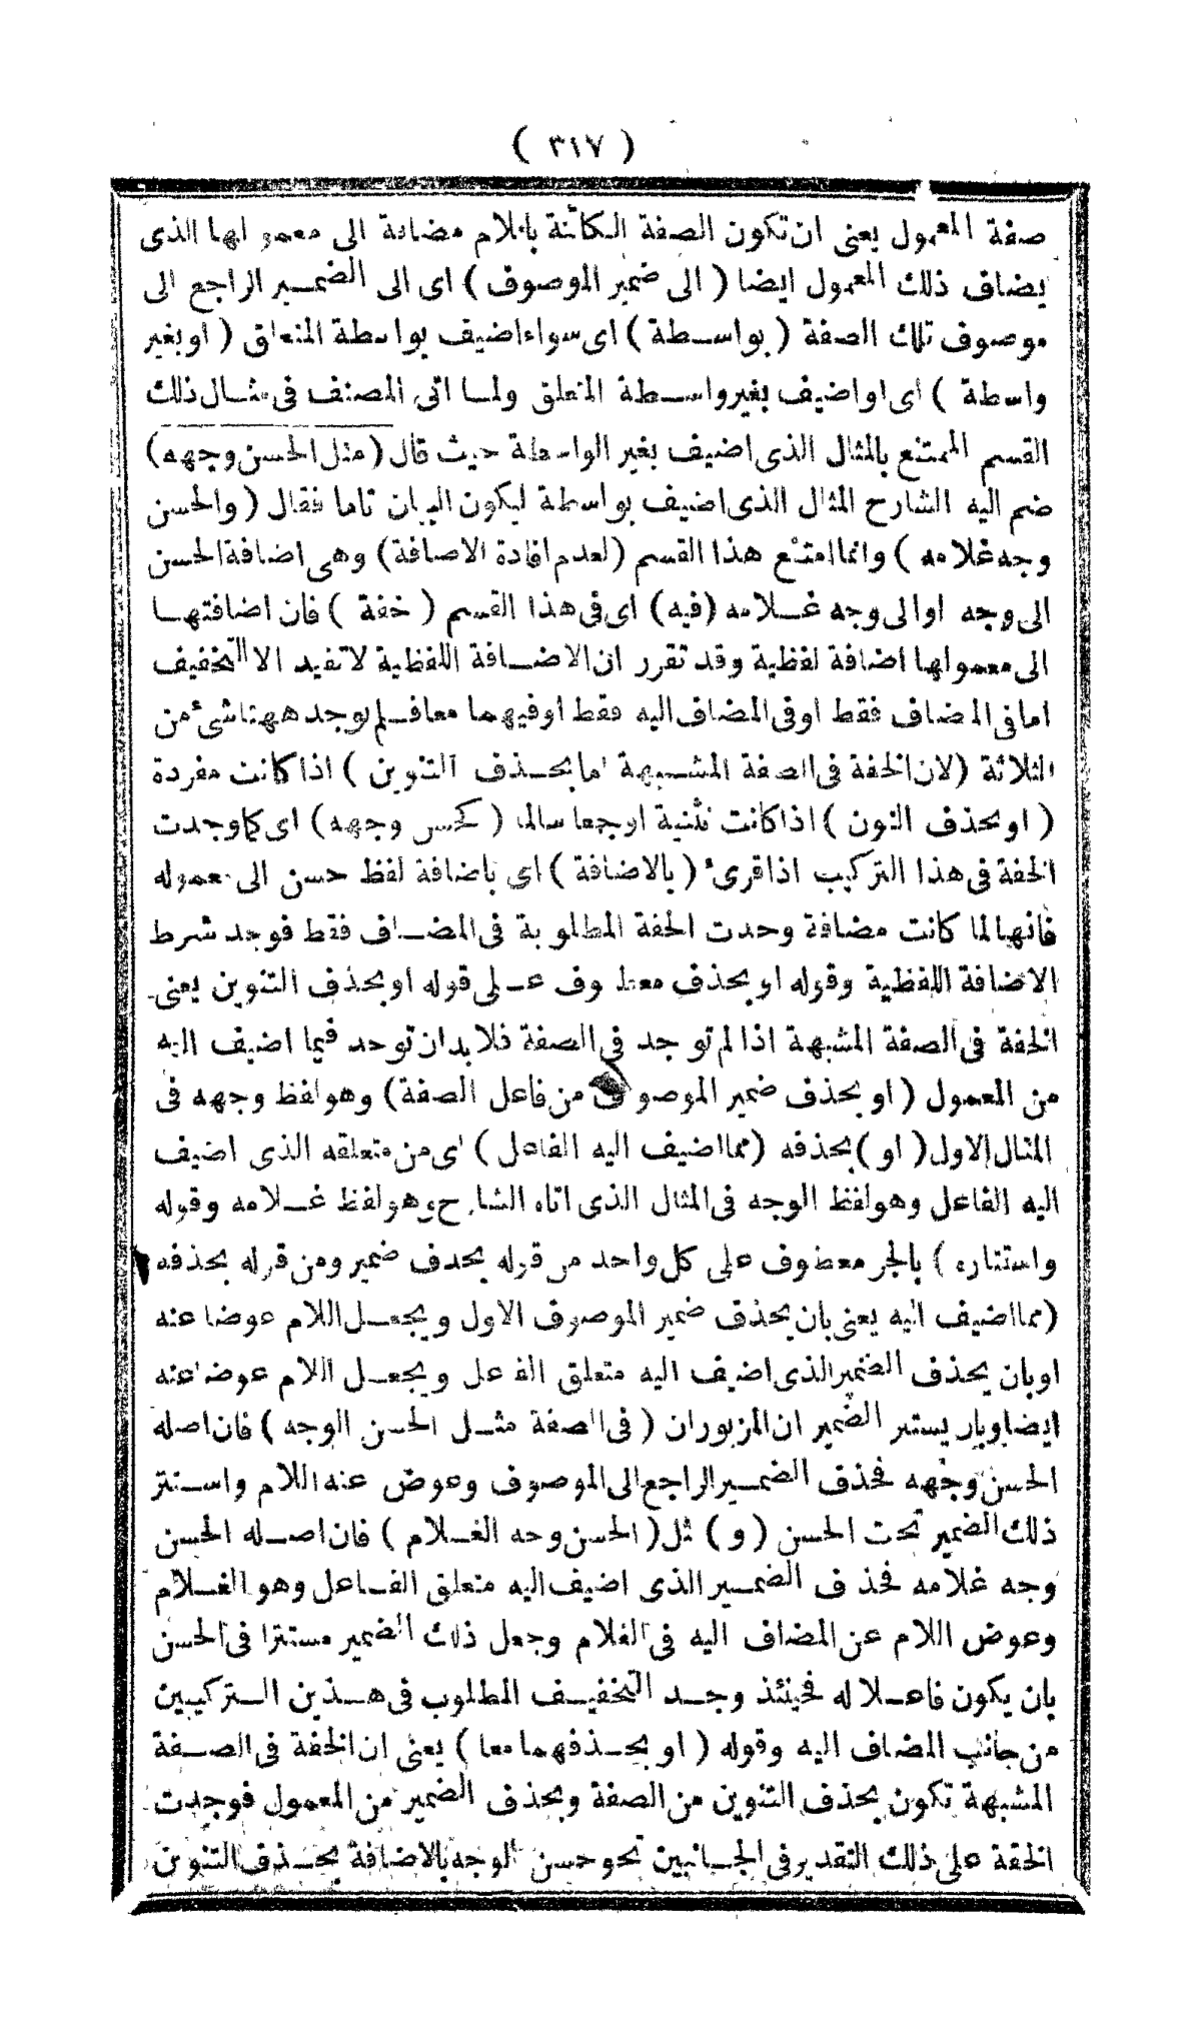 ( ٣١٧ )
صفة المعمول يعنى ان تكون الصفة الكائنة باللام مضافة الى معمولها الذى
يضاف ذلك المعمول ايضا ( الى ضمير الموصوف ) اى الى الضمير الراجع الى
موصوف تلك الصفة ( بواسطة ) اى سواء اضيف بواسطة المتعلق ( او بغير
واسطة ) اى او اضيف بغير واسطة المتعلق ولما اتى المصنف فى مثال ذلك
القسم الممتنع بالمثال الذى اضيف بغير الواسطة حيث قال ( مثل الحسن وجهه )
ضم اليه الشارح المثال الذى اضيف بواسطة ليكون البيان تاما فقال ( والحسن
وجه غلامه ) وانما امتنع هذا القسم ( لعدم افادة الاضافة ) وهى اضافة الحسن
الى وجه او الى وجه غلامه ( فيه ) اى فى هذا القسم ( خفة ) فان اضافتها
الى معمولها اضافة لفظية وقد تقرر ان الاضافة اللفظية لا تفيد الا التخفيف
اما فى المضاف فقط او فى المضاف اليه فقط او فيهما معا فلم يوجد ههنا شئ من
الثلاثة ( لان الخفة فى الصفة المشبهة اما بحذف التنوين ) اذا كانت مفردة
( او بحذف النون ) اذا كانت تثنية او جمعا سالما ( كحسن وجهه ) اى كما وجدت
الخفة فى هذا التركيب اذا قرئ ( بالاضافة ) اى باضافة لفظ حسن الى معموله
فانها لما كانت مضافة وجدت الخفة المطلوبة فى المضاف فقط فوجد شرط
الاضافة اللفظية وقوله او بحذف معطوف على قوله او بحذف التنوين يعنى
الخفة فى الصفة المشبهة اذا لم توجد فى الصفة فلا بد ان توجد فيما اضيف اليه
من المعمول ( او بحذف ضمير الموصوف من فاعل الصفة ) وهو لفظ وجهه فى
المثال الاول ( او ) بحذفه ( مما اضيف اليه الفاعل ) اى من متعلقه الذى اضيف
اليه الفاعل وهو لفظ الوجه فى المثال الذى اتاه الشارح وهو لفظ غلامه وقوله
واستتاره ) بالجر معطوف على كل واحد من قوله بحذف ضمير ومن قوله بحذفه
( مما اضيف اليه يعنى بان يحذف ضمير الموصوف الاول ويجعل اللام عوضا عنه
او بان يحذف الضمير الذى اضيف اليه متعلق الفاعل ويجعل اللام عوضا عنه
ايضا وبان يستتر الضمير ان المزبوران ( فى الصفة مثل الحسن الوجه ) فان اصله
الحسن وجهه فحذف الضمير الراجع الى الموصوف وعوض عنه اللام واستتر
ذلك الضمير تحت الحسن ( و ) مثل ( الحسن وجه الغلام ) فان اصله الحسن
وجه غلامه فحذف الضمير الذى اضيف اليه متعلق الفاعل وهو الغلام
وعوض اللام عن المضاف اليه فى الغلام وجعل ذلك الضمير مستترا فى الحسن
بان يكون فاعلا له فحينئذ وجد التخفيف المطلوب فى هذين التركيبين
من جانب المضاف اليه وقوله ( او بحذفهما معا ) يعنى ان الخفة فى الصفة
المشبهة تكون بحذف التنوين من الصفة وبحذف الضمير من المعمول فوجدت
الخفة على ذلك التقدير فى الجانبين نحو حسن الوجه بالاضافة بحذف التنوين